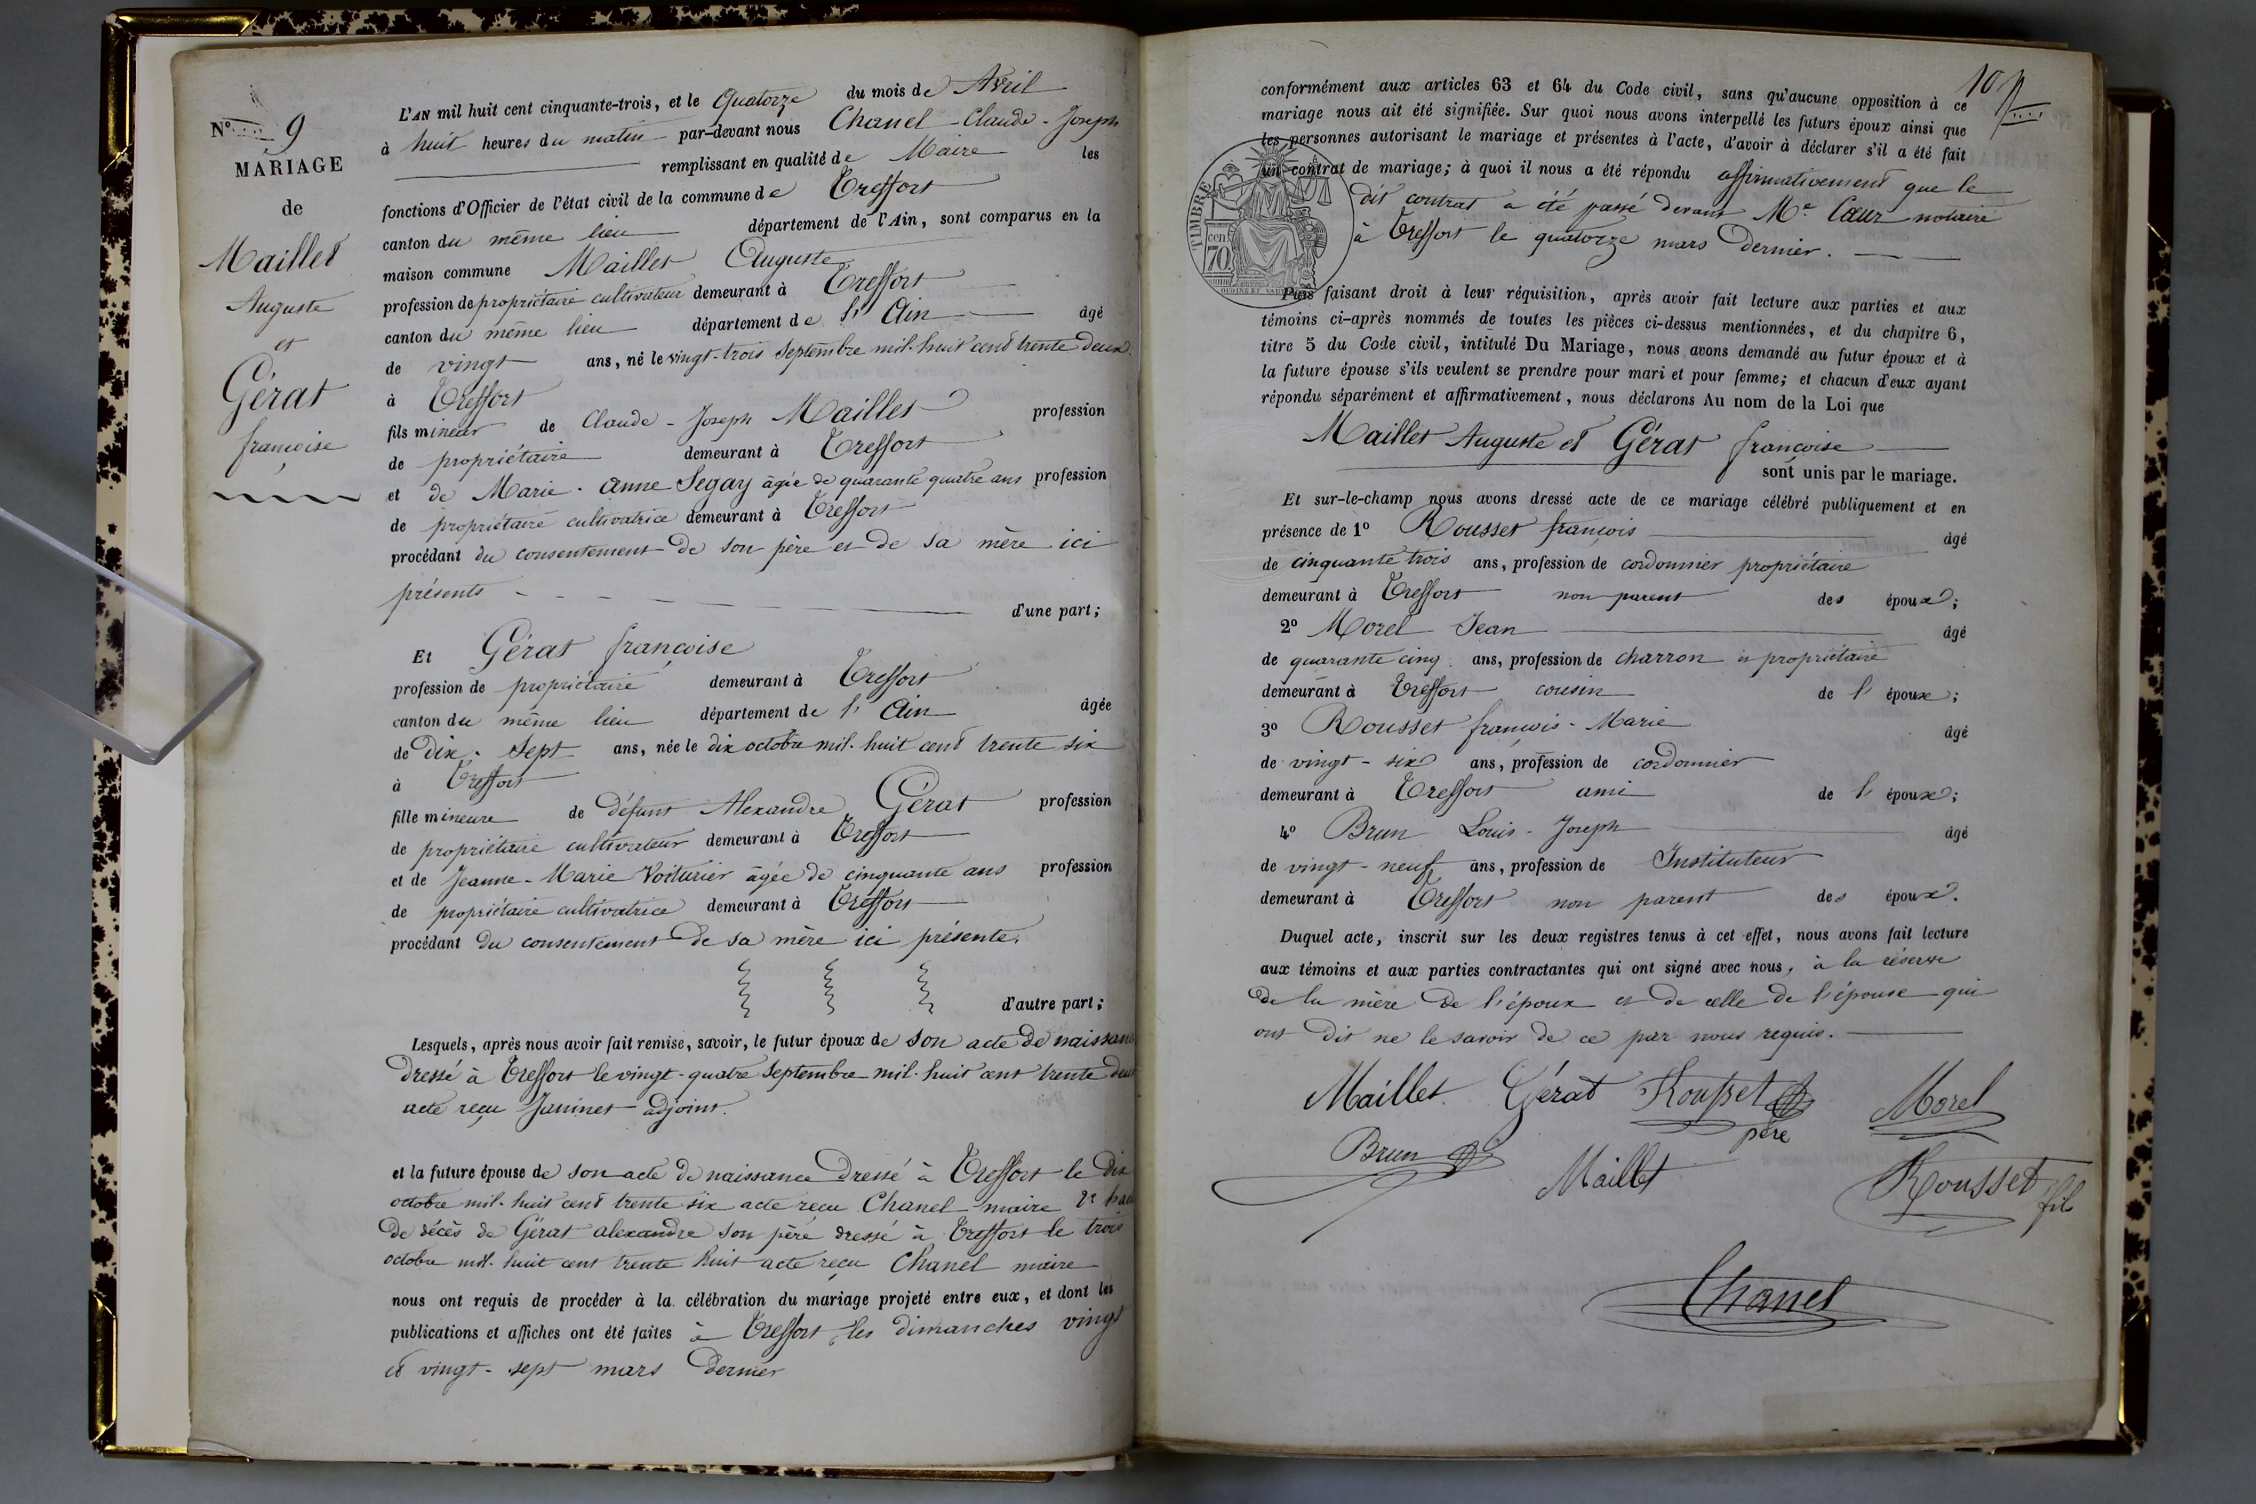 N° 9
MARIAGE
de
Maillet
Auguste
et
Gérat
françoise
L'AN mil huit cent cinquante-trois, et le Quatorze du mois de Avril
à huit heures du matin par-devant nous Chanel - Claude - Joseph
remplissant en qualité de Maire les
fonctions d'Officier de l'état civil de la commune de Treffort
canton du même lieu département de l'Ain, sont comparus en la
maison commune Maillet Auguste
profession de propriétaire cultivateur demeurant à Treffort
canton du même lieu département de l'Ain âgé
de vingt ans, né le vingt-trois Septembre mil-huit cent trente deux
à Treffort
fils mineur de Claude - Joseph Maillet profession
de propriétaire demeurant à Treffort
et de Marie - Anne Segay âgée de quarante quatre ans profession
de propriétaire cultivatrice demeurant à Treffort
procédant du consentement de son père et de sa mère ici
présents
d'une part;
Et Gérat françoise
profession de propriétaire demeurant à Treffort
canton du même lieu département de l'Ain âgée
de Dix-Sept ans, née le dix octobre mil-huit cent trente six
à Treffort
fille mineure de défunt Alexandre Gérat profession
de propriétaire cultivateur demeurant à Treffort
et de Jeanne-Marie Voiturier âgée de cinquante ans profession
de propriétaire cultivatrice demeurant à Treffort
procédant du consentement de sa mère ici présente.
d'autre part;
Lesquels, après nous avoir fait remise, savoir, le futur époux de son acte de naissance
dressé à Treffort le vingt-quatre Septembre mil-huit cent trente deux
acte reçu Janinet adjoint.
et la future épouse de son acte de naissance Dressé à Treffort le dix
octobre mil-huit cent trente six acte reçu Chanel maire 2°
de décès de Gérat alexandre son père dressé à Treffort le trois
octobre mil-huit cent trente huit acte reçu Chanel maire
nous ont requis de procéder à la célébration du mariage projeté entre eux, et dont les
publications et affiches ont été faites à Treffort les dimanches vingt
et vingt-sept mars Dernier
10
conformément aux articles 63 et 64 du Code civil, sans qu'aucune opposition à ce
mariage nous ait été signifiée. Sur quoi nous avons interpellé les futurs époux ainsi que
les personnes autorisant le mariage et présentes à l'acte, d'avoir à déclarer s'il a été fait
un contrat de mariage; à quoi il nous a été répondu affirmativement que le
dit contrat a été passé devant Me Cœur notaire
à Treffort le quatorze mars dernier.
TIMBRE
cent.
70
Puis faisant droit à leur réquisition, après avoir fait lecture aux parties et aux
témoins ci-après nommés de toutes les pièces ci-dessus mentionnées, et du chapitre 6,
titre 5 du Code civil, intitulé Du Mariage, nous avons demandé au futur époux et à
la future épouse s'ils veulent se prendre pour mari et pour femme; et chacun d'eux ayant
répondu séparément et affirmativement, nous déclarons Au nom de la Loi que
Maillet Auguste et Gérat françoise
sont unis par le mariage.
Et sur-le-champ nous avons dressé acte de ce mariage célébré publiquement et en
présence de 1° Rousset françois âgé
de cinquante trois ans, profession de cordonnier propriétaire
demeurant à Treffort non parent des époux;
2° Morel Jean âgé
de quarante cinq ans, profession de charron et propriétaire
demeurant à Treffort cousin de l'époux;
3° Rousset françois-Marie âgé
de vingt-six ans, profession de cordonnier
demeurant à Treffort ami de l'époux;
4° Brun Louis-Joseph âgé
de vingt-neuf ans, profession de Instituteur
demeurant à Treffort non parent des époux.
Duquel acte, inscrit sur les deux registres tenus à cet effet, nous avons fait lecture
aux témoins et aux parties contractantes qui ont signé avec nous, à la réserve
de la mère de l'époux et de celle de l'épouse qui
ont dit ne le savoir de ce par nous requis.
Maillet Gérat Rousset père Morel
Brun Maillet Rousset fils
Chanel